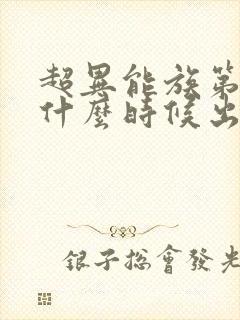 超異能族第
什麼時候出
銀子總會發光